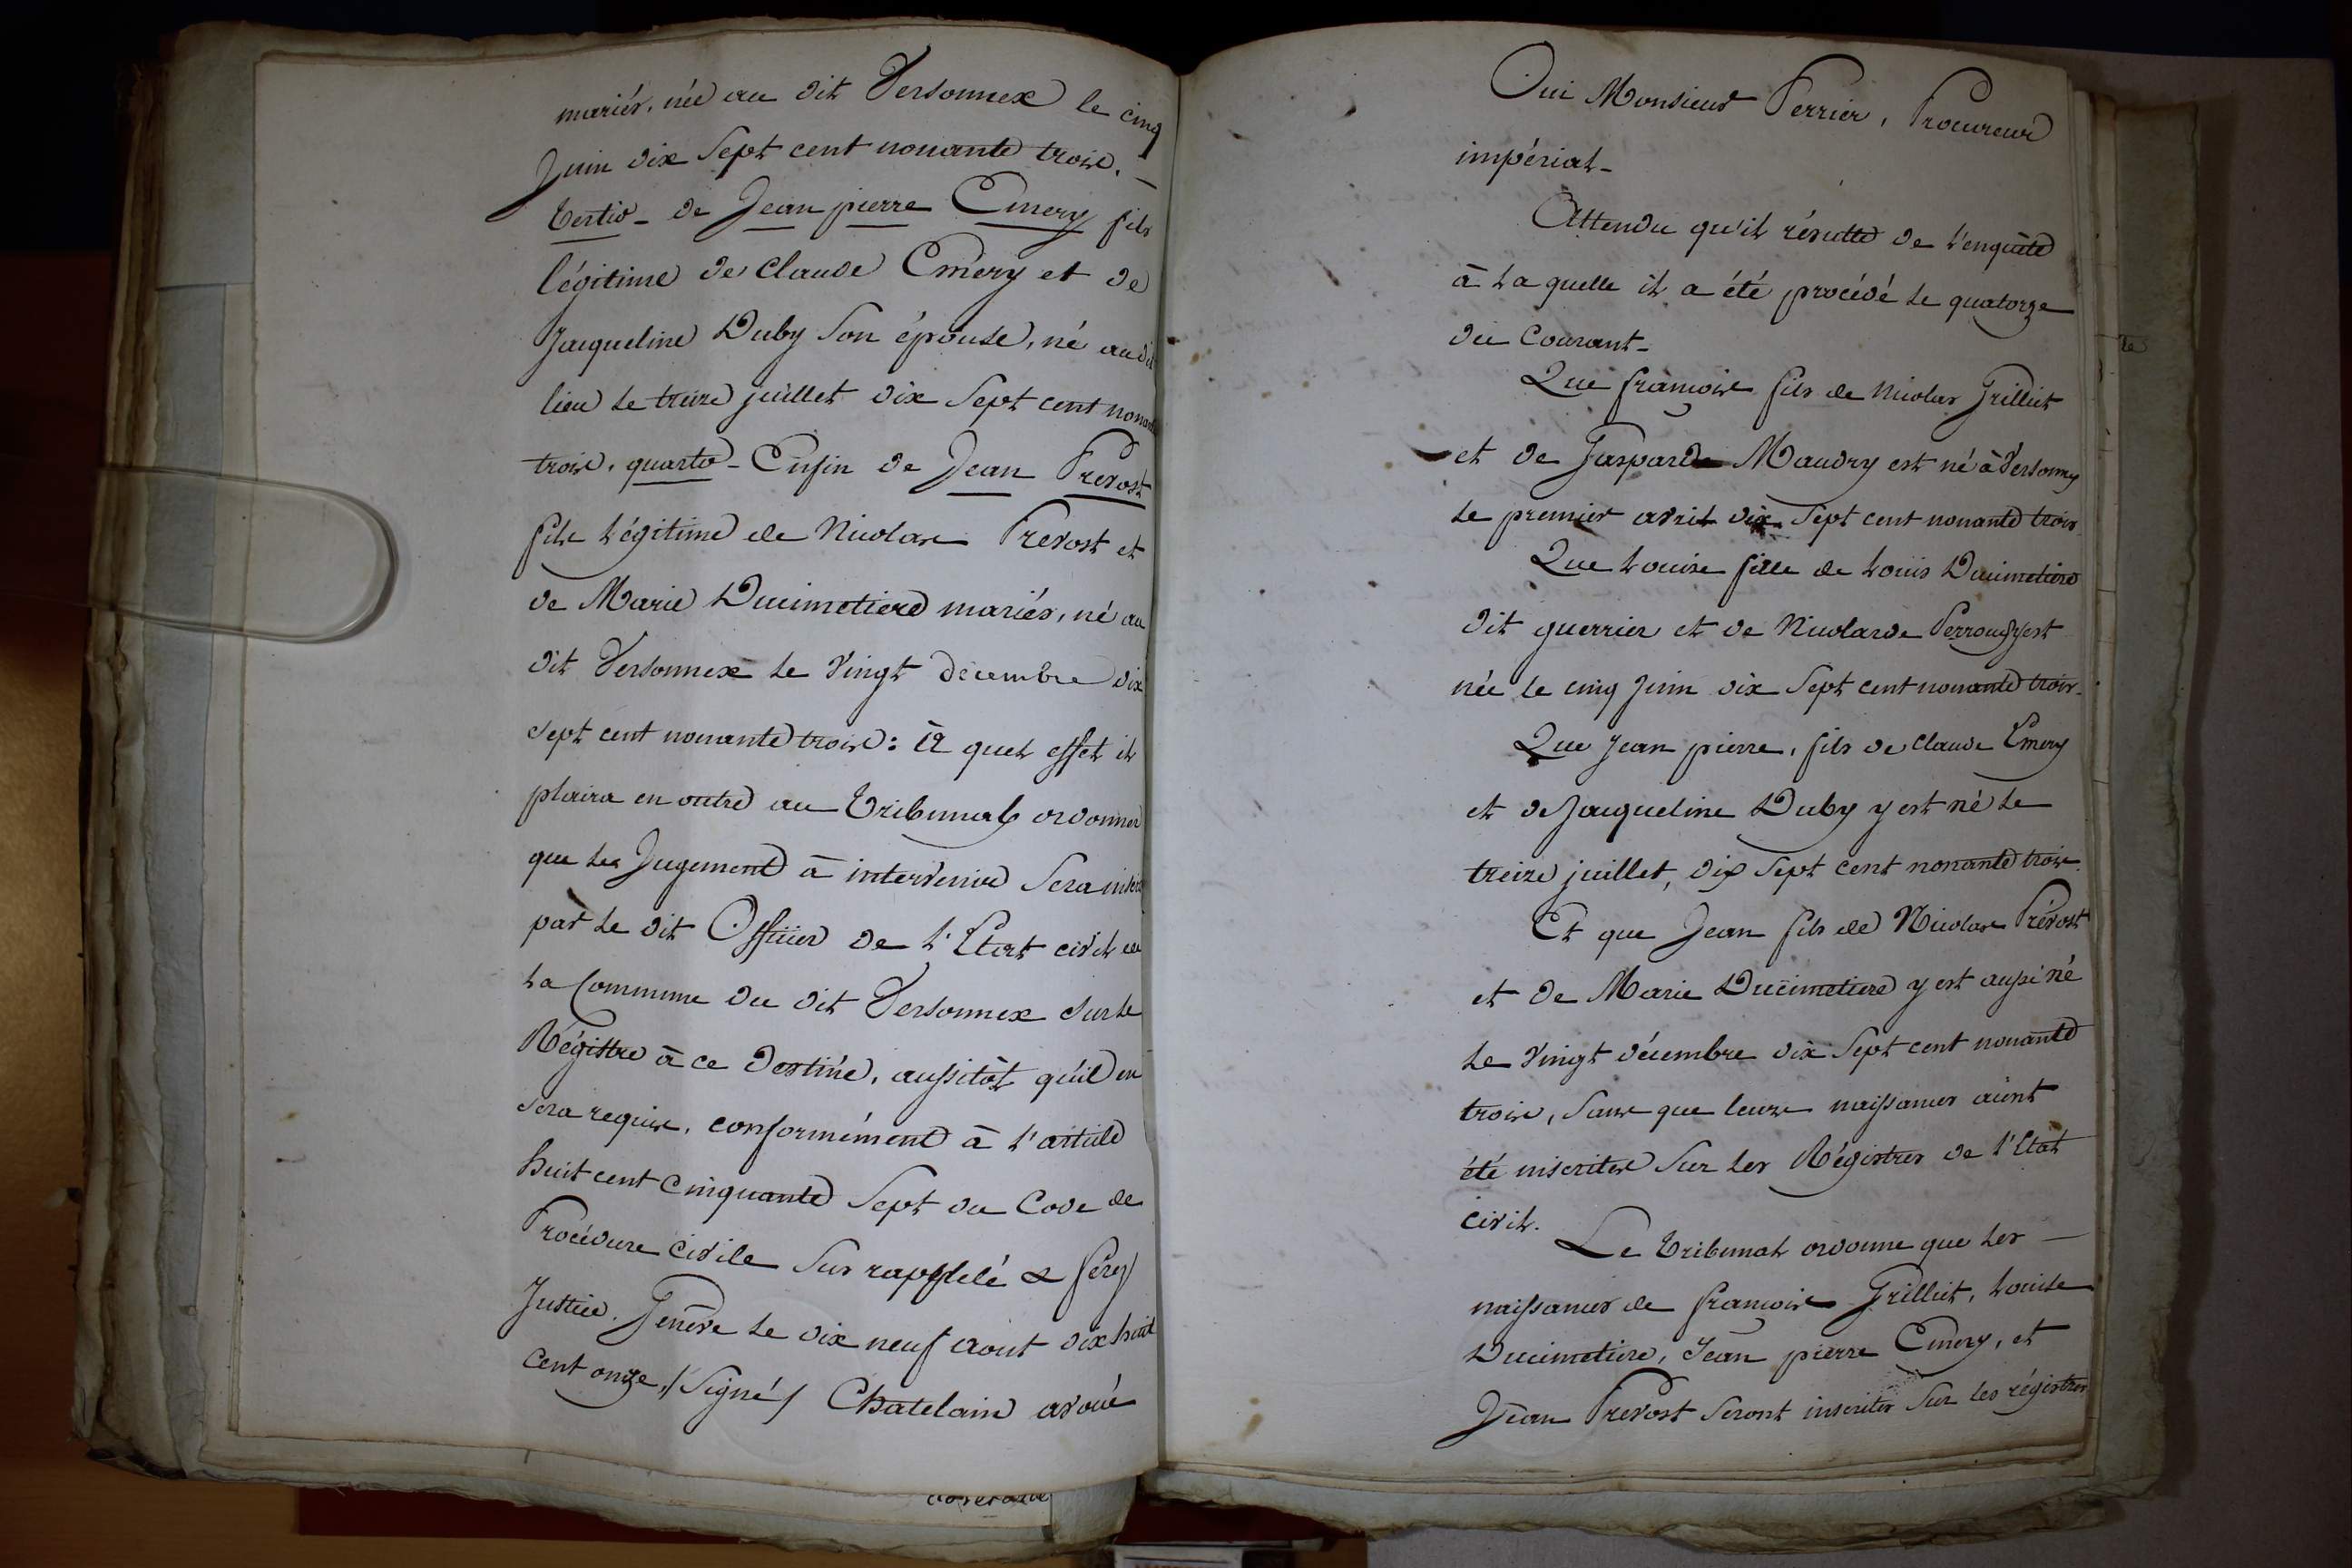 mariés, née au dit Versonnex le cinq
Juin dix Sept cent nonante trois. —
tertio - de Jean pierre Emery fils
légitime de Claude Emery et de
Jacqueline Duby Son épouse, né au dit
lieu le treize juillet dix Sept cent nonante
trois. quarto - Enfin de Jean Prevost
fils légitime de Nicolas Prevost et
de Marie Ducimetiere mariés, né au
dit Versonnex le vingt décembre dix
Sept cent nonante trois : A quel effet il
plaira en outre au Tribunal ordonner
que les Jugement à intervenir Sera inséré
par le dit Officier de l'Etat civil de
la Commune du dit Versonnex sur le
Régistre à ce destiné, aussitôt qu'il en
sera requis, conformément à l'article
huit cent cinquante Sept du Code de
Procédure civile Sus rappellé & ferez
Justice. Genève le dix neuf Aout dix huit
cent onze, /Signé/ Chatelain avoué
Oui Monsieur Perrier, Procureur
impérial -
Attendu qu'il résulte de l'enquête
à la quelle il a été procédé le quatorze
du Courant -
Que françois fils de Nicolas Grilliet
et de Gasparde Maudry est né à Versonnex
le premier avril dix Sept cent nonante trois
Que Louise fille de Loüis Ducimetiere
dit guerrier et de Nicolarde y est
née le cinq Juin dix Sept cent nonante trois -
Que Jean pierre, fils de Claude Emery
et de Jacqueline Duby y est né le
treize juillet, dix Sept cent nonante trois.
Et que Jean fils de Nicolas Prévost
et de Marie Ducimetiere y est aussi né
le vingt décembre dix Sept cent nonante
trois, Sans que leurs naissances aient
été inscrites Sur les Régistres de l'Etat
civil.
Le Tribunal ordonne que les —
naissances de françois Grilliet, Louise
Ducimetiere, Jean pierre Emery, et
Jean Prevost seront inscrites Sur les régistres